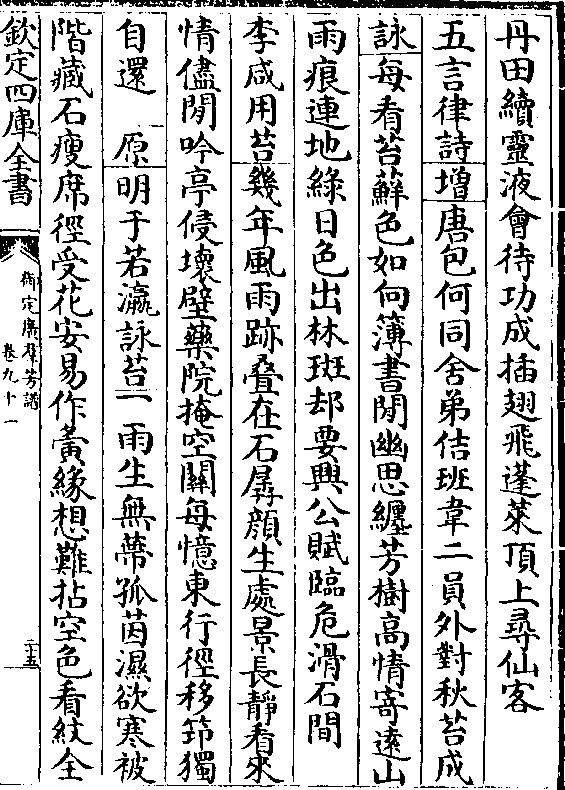 丹田續靈液會待功成插翅飛蓬萊頂上尋仙客
五言律詩增唐包何同舍弟佶班韋二員外對秋苔成
詠每看苔蘚色如向簿書閒幽思纏芳樹高情寄遠山
雨痕連地綠日色出林斑却要興公賦臨危滑石間
李咸用苔幾年風雨跡疊在石孱顏生處景長靜看來
情儘閒吟亭侵壞壁藥院掩空關每憶東行徑移筇獨
自還 原明于若瀛詠苔一雨生無蔕孤茵濕欲寒被
階藏石瘦席徑受花安易作黃緣想難拈空色看紋全
欽定四庫全書
御定廣羣芳譜
卷九十一
二十五